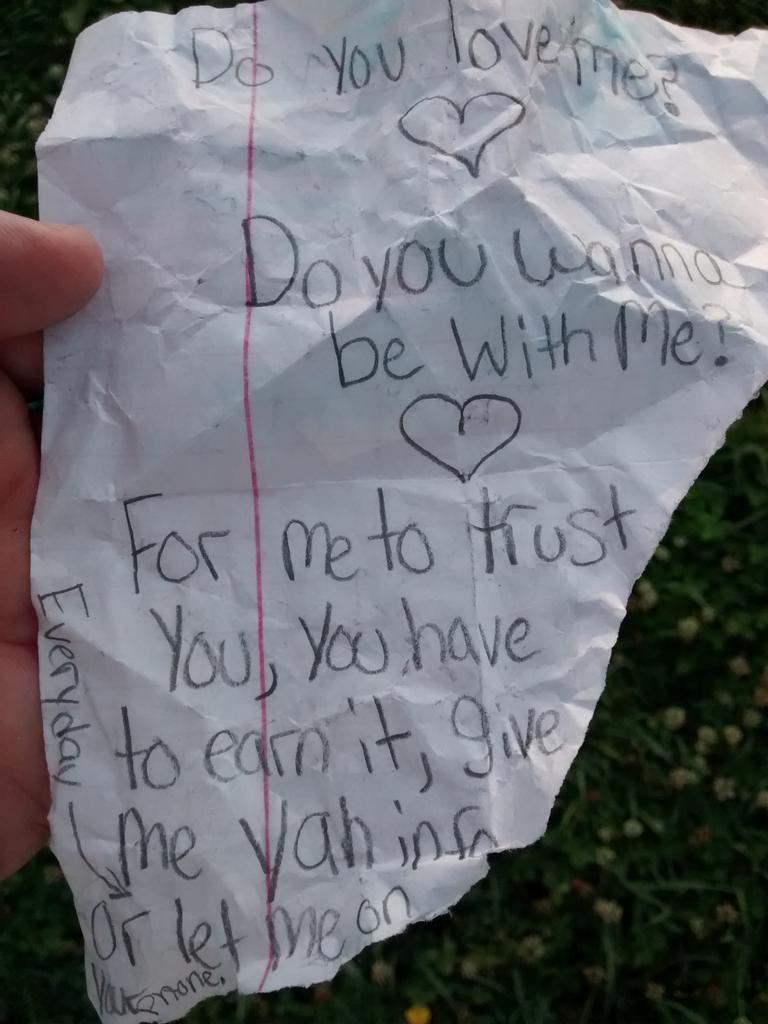 Do you love me?
Do you wanna
be with Me?
For me to trust
You, You have
to earn it, give
Me Yah info
Or let me on
Your phone.
Everyday